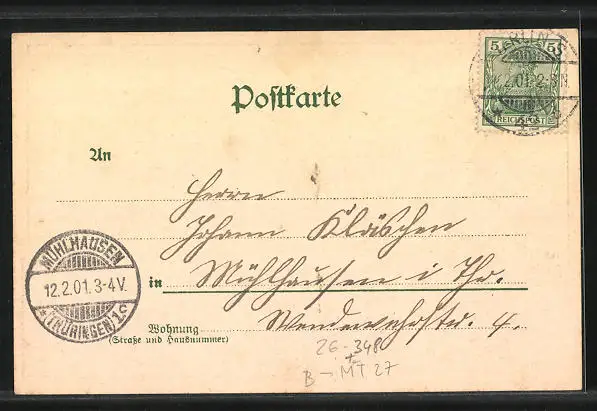 5 5
REICHSPOST
BERLIN S
2.01.2-3N.
Postkarte
An
Herrn
Johann Kläschen
MÜHLHAUSEN
12.2.01.3-4V.
*(THÜRINGEN)1c
in Mühlhausen i Thr.
Wohnung
(Straße und Hausnummer)
4.
26-348
B-MT 27